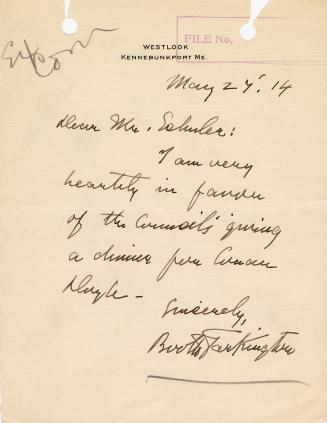 Ex Com
FILE No.
WESTLOOK
KENNEBUNKPORT ME.
May 27. 14
Dear Mr. Schuler:
I am very
heartily in favor
of the Council's giving
a dinner for Conan
Doyle –
Sincerely,
Booth Tarkington